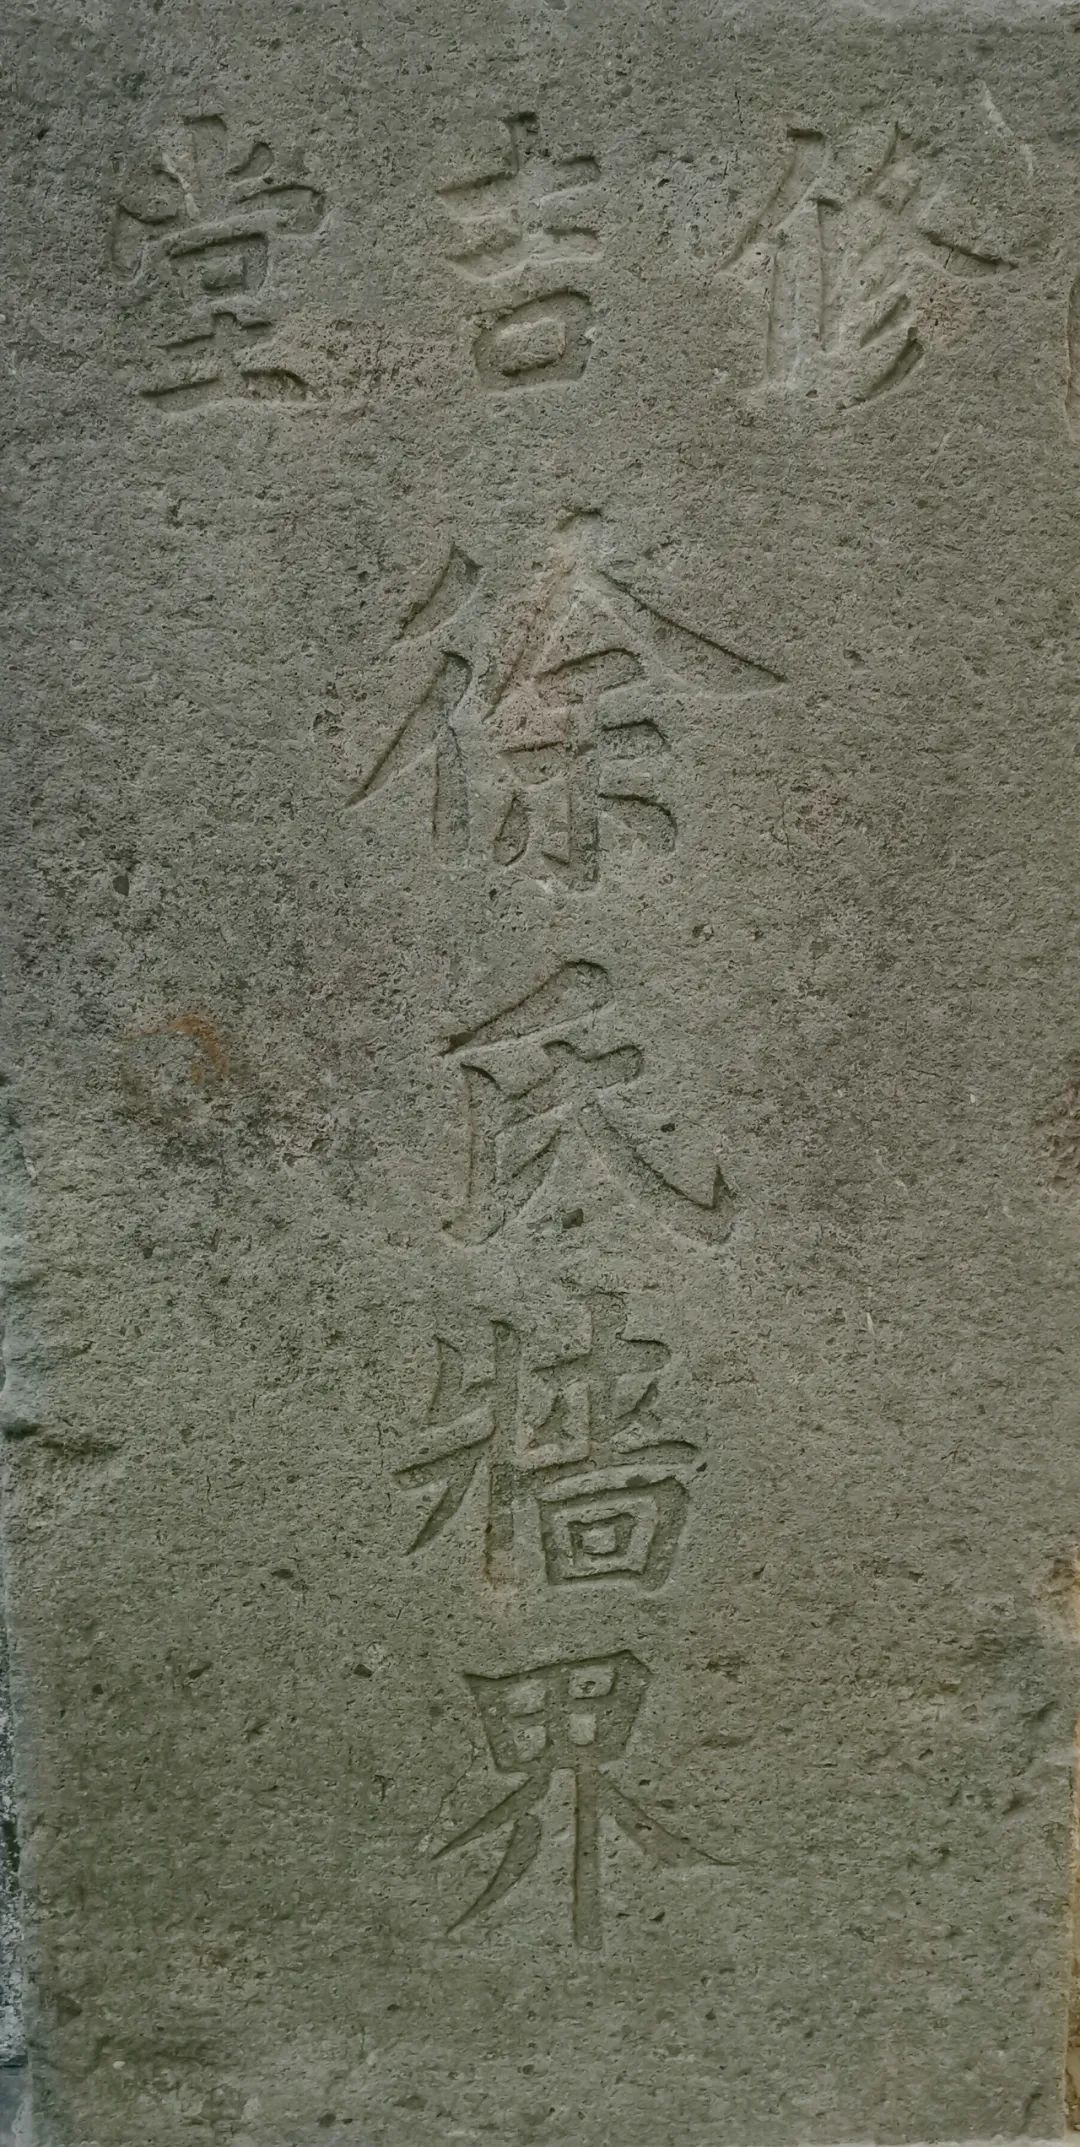 修吉堂
徐氏牆界